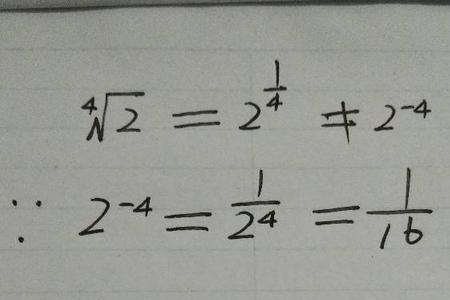 ∜2 = 2^(1/4) ≠ 2^(-4)
∵ 2^(-4) = 1/2^4 = 1/16